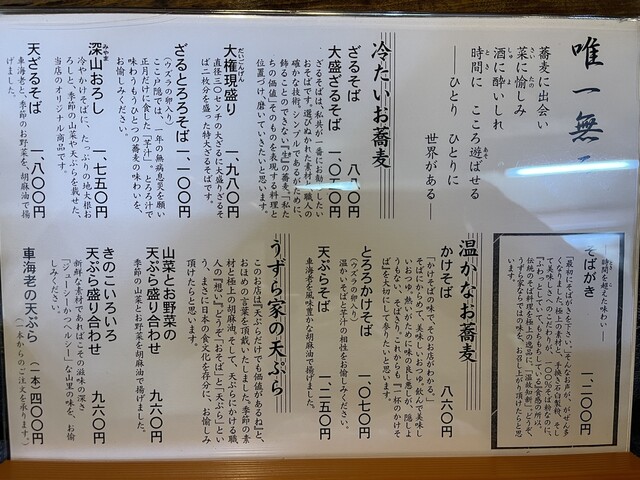 唯一無
蕎麦に出会い
菜に愉しみ
酒に酔いしれ
時間に こころ遊ばせる
──ひとり ひとりに
世界がある──
冷たいお蕎麦
ざるそば
大盛ざるそば 一、〇七〇円
ざるそばは、私共が一番にお勧めしたい
おそばです。選びぬかれた素材と職人の
確かな技術。シンプルであるがために、
飾ることのできない『生』の蕎麦。「私た
ちの価値」そのものを表現する料理と
位置づけ、磨いていきたいと思います。
大権現盛り 一、九八〇円
だいごんげん
直径三〇センチの大ざるに大盛りざるそ
ば二枚分を盛った特大ざるそばです。
ざるとろろそば 一、一〇〇円
(ウズラの卵入り)
ここ戸隠では、一年の無病息災を願い
正月だけに食した「芋汁」 とろろ汁で
味わうもうひとつの蕎麦の味わいを、
お愉しみください。
深山おろし 一、七五〇円
みやま
冷やかけそばに、たっぷりの地大根お
ろしと、季節の山菜や天ぷらを載せた、
当店のオリジナル商品です。
天ざるそば 一、八〇〇円
車海老と、季節のお野菜を、胡麻油で揚
げました。
──時間を超えた味わい──
そばがき 一、二〇〇円
「最初にそばがきを下さい。」そんなお声が、がぜん多
温かなお蕎麦
かけそば 八六〇円
「かけそばの味で、そのお店がわかる。」
そばの味で、美味しいおつゆを飲んで美味し
いおつゆ。熱いがため、味の良し悪しが、隠しよ
うもない、そばきり。これからも「一杯のかけそ
ば」を大切にして参りたいと思います。
とろろかけそば 一、〇七〇円
(ウズラの卵入り)
温かいそばと芋汁の相性をお愉しみください。
天ぷらそば 一、二五〇円
車海老を風味豊かな胡麻油で揚げました。
うずら家の天ぷら
このお店は『天ぷらだけでも価値があるね』と、
おほめの言葉を頂戴いたしました。季節の素
材と極上の胡麻油。そして、天ぷらにかける職
人の『想い』「どうぞ『おそば』と『天ぷら』とい
う、まさに日本の食文化を存分に、お愉しみ
頂けたらと思います。
山菜とお野菜の
天ぷら盛り合わせ 九六〇円
季節の山菜とお野菜を胡麻油で揚げました。
きのこいろいろ
天ぷら盛り合わせ 九六〇円
新鮮な素材であればこその滋味の深さ
「ジューシーかつヘルシー」な山里の味を、お愉
しみください。
車海老の天ぷら (一本)四〇〇円
(一本からのご注文を承ります。)